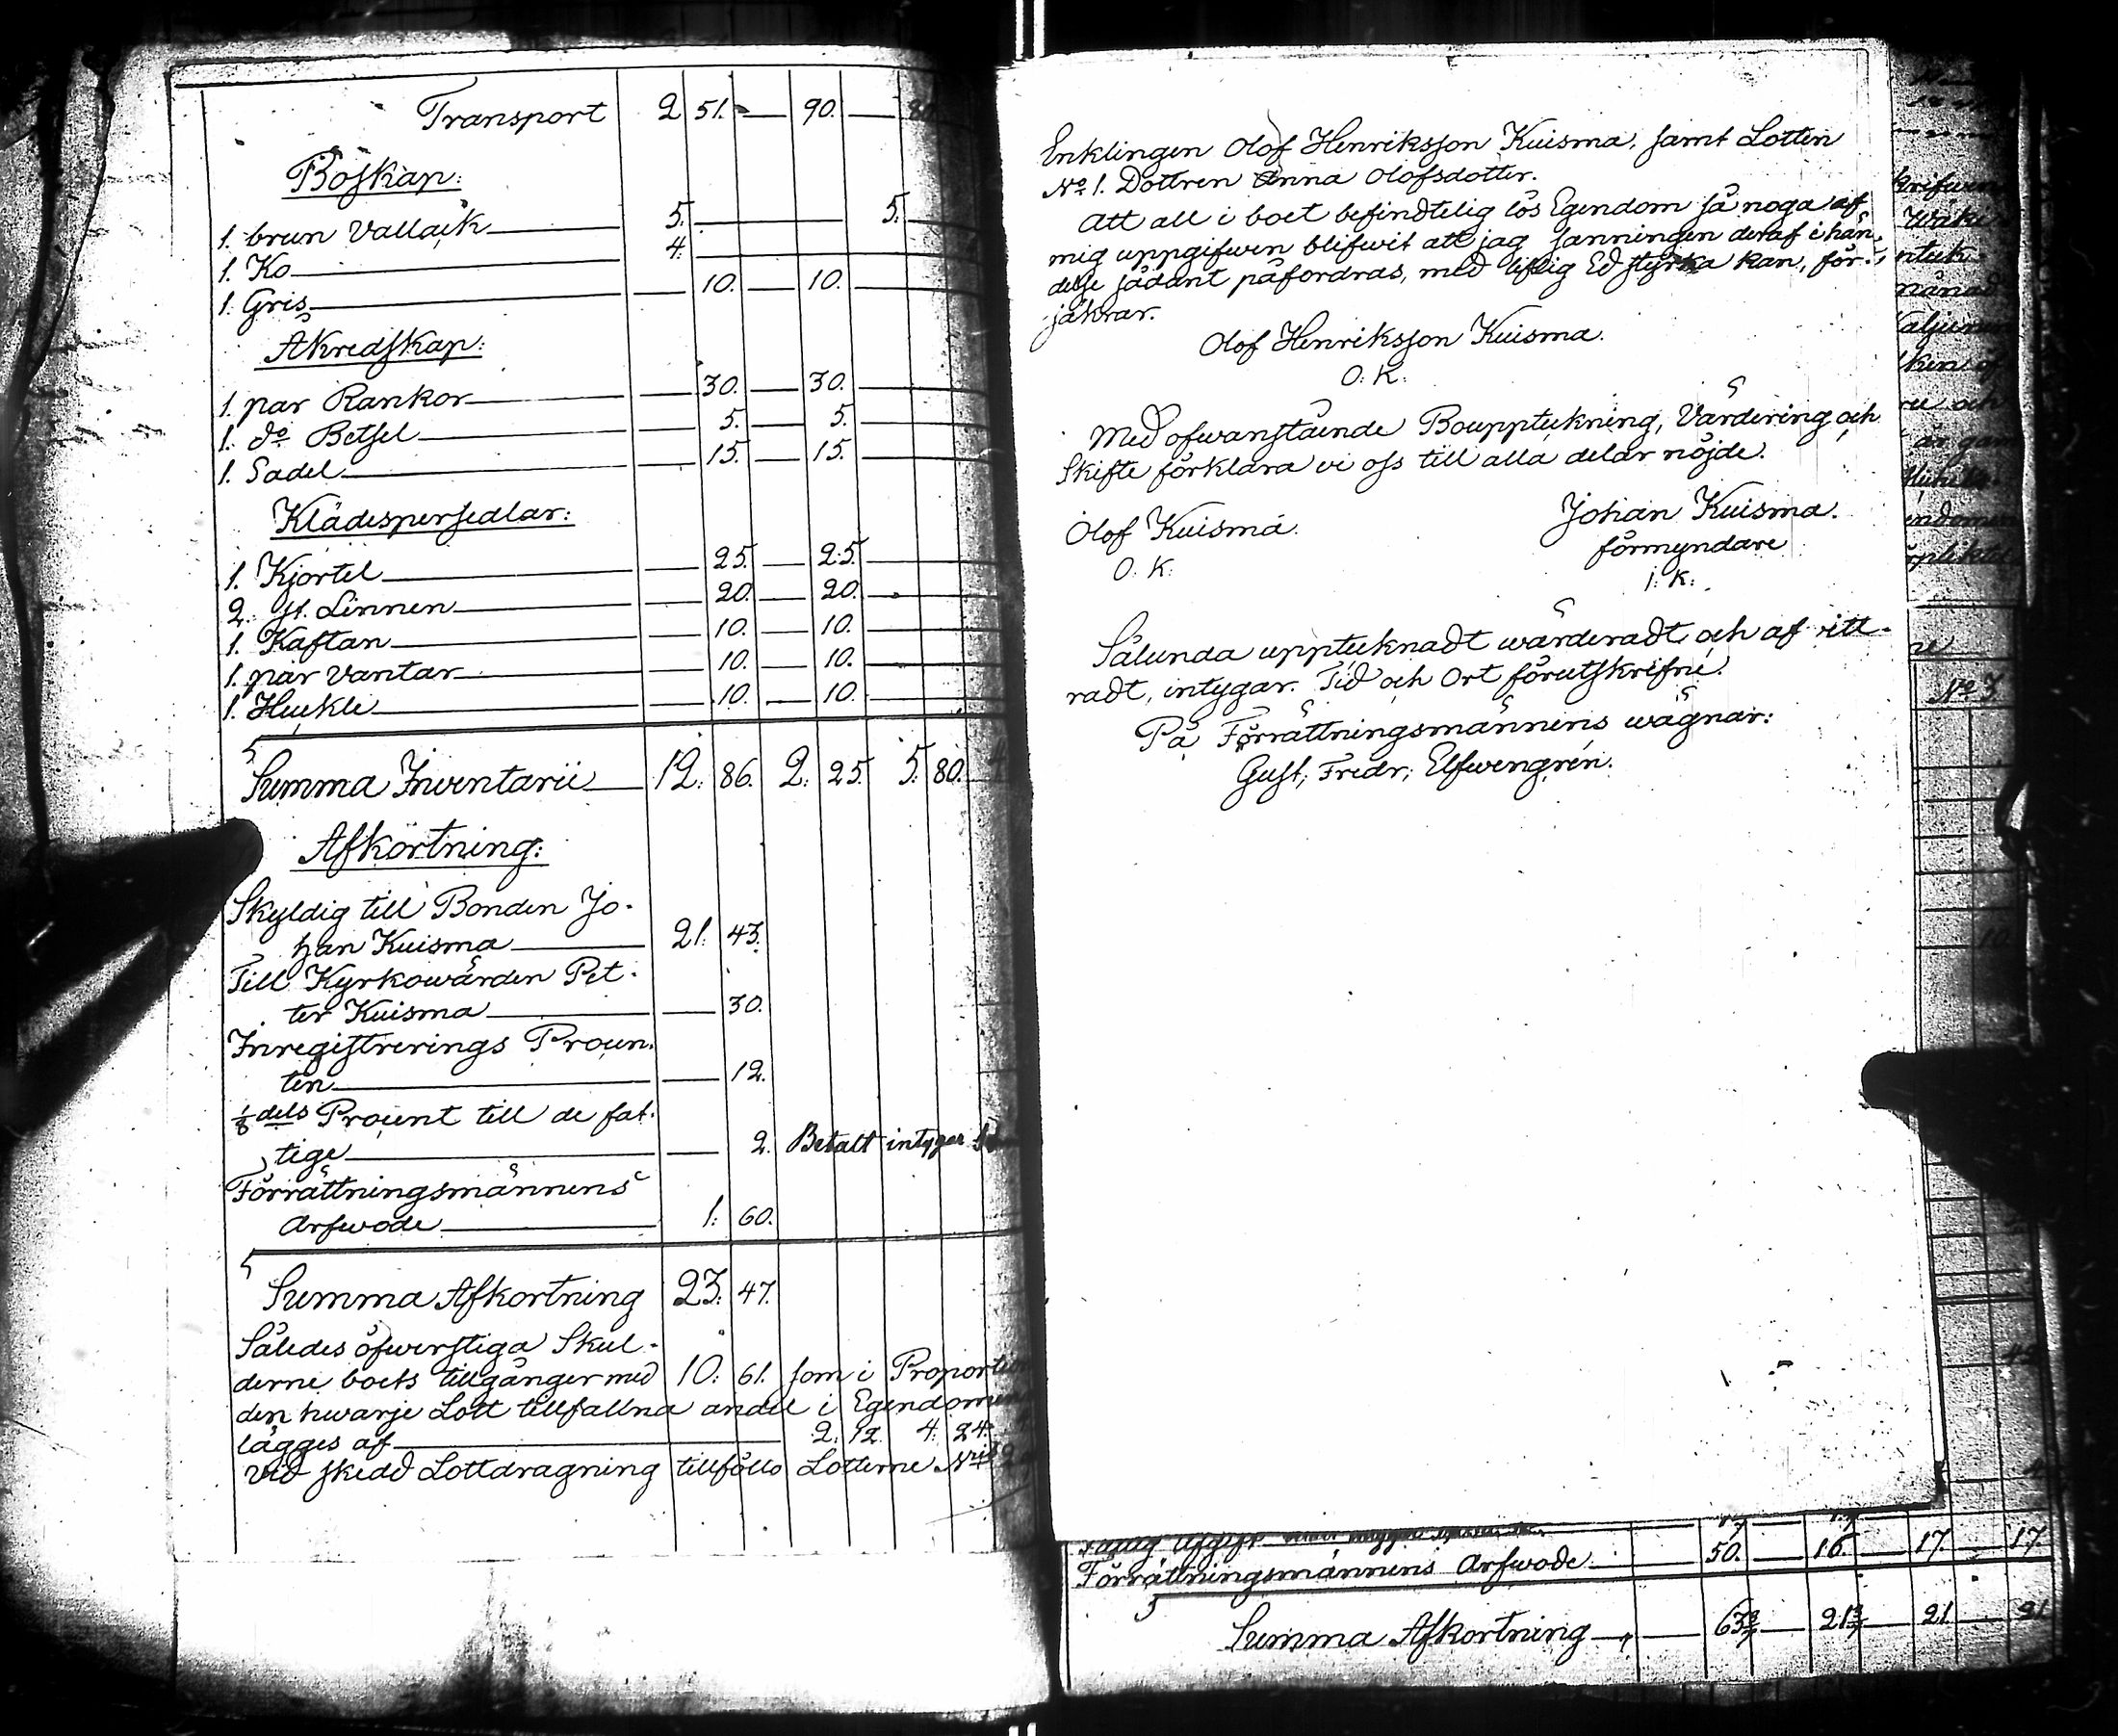 Transport 2 51. — 90. —
Boskap:
1. brun Vallack — 5. — 5. —
1. Ko — 4. —
1. Gris — 10. — 10. —
Åkredskap:
1. par Rankor — 30. — 30. —
1. do Betsel — 5. — 5. —
1. Sadel — 15. — 15. —
Klädespersedlar:
1. Kjortel — 25. — 25. —
2. st. Linnen — 20. — 20. —
1. Kaftan — 10. — 10. —
1. par Vantar — 10. — 10. —
1. Huckle — 10. — 10. —
Summa Inventarii — 12. 86. 2. 25. 5. 80. 4
Afkortning:
Skyldig till Bonden Jo-
han Kuisma — 21. 43.
Till Kyrkowärden Pet-
ter Kuisma — 30.
Inregistrerings Procen-
ten — 12.
1/8 dels Procent till de fat-
tige — 2. Betalt intygar
Förrättningsmännens
Arfwode — 1. 60.
Summa Afkortning 23. 47.
Således öfwerstiga Skul-
derne boets tillgånger med 10. 61. som i Proportion
den hwarje Lott tillfallna andel i Egendomen
lägges af — 2. 12. 4. 24.
Vid skedd Lottdragning tillföllo Lotterne
Enklingen Olof Henriksson Kuisma, samt Lotten
No 1. Dottren Anna Olofsdotter.
Att all i boet befindtelig lös Egendom så noga af
mig uppgifwen blifwit att jag sanningen deraf i hän-
delse sådant påfordras, med liflig Ed styrka kan, för-
säkrar.
Olof Henriksson Kuisma.
O. K.
Med ofwanstående Bouppteckning, Värdering och
Skifte förklara vi oss till alla delar nöjde.
Olof Kuisma. Johan Kuisma.
O. K. förmyndare
I. K.
Sålunda uppteknadt wärderadt och af vitt-
radt, intygar. Tid och Ort förutskrifne.
På Förrättningsmännens wägnar:
Gust. Fredr. Elfwengrén.
No 3
10
Förrättningsmännens Arfwode — 50. — 16. — 17 — 17.
Summa Afkortning — 63 2/7 — 21 2/7 — 21 — 21